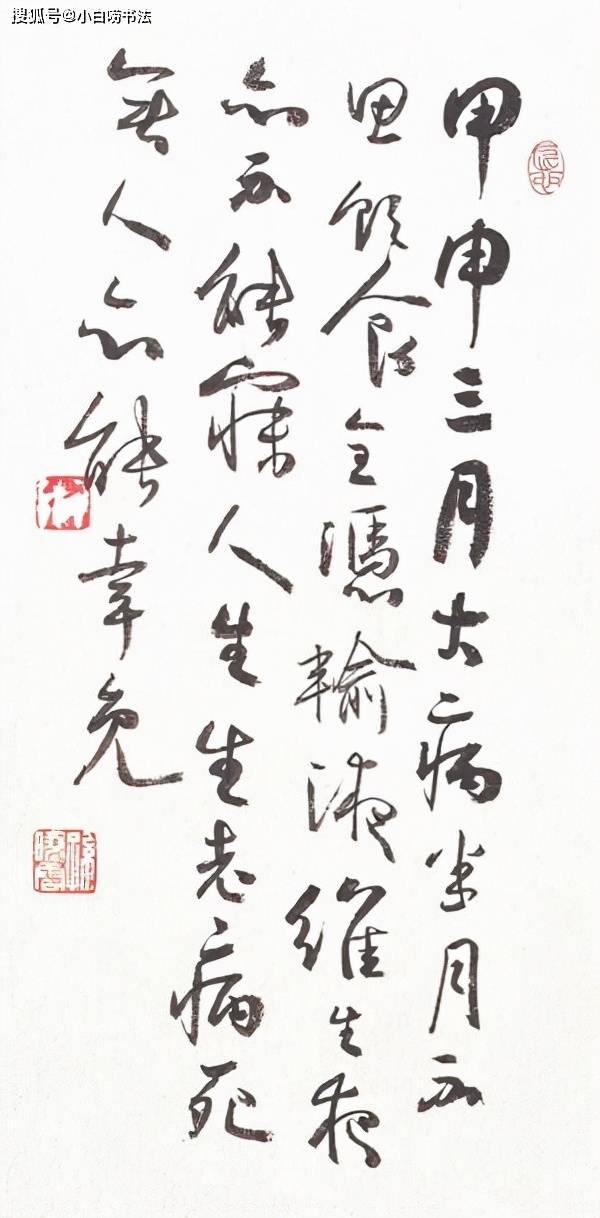 搜狐号@小白唠书法
甲申三月大病半月不
思饮食全憑输液維生夜
亦不能寐人生生老病死
無人亦能幸免